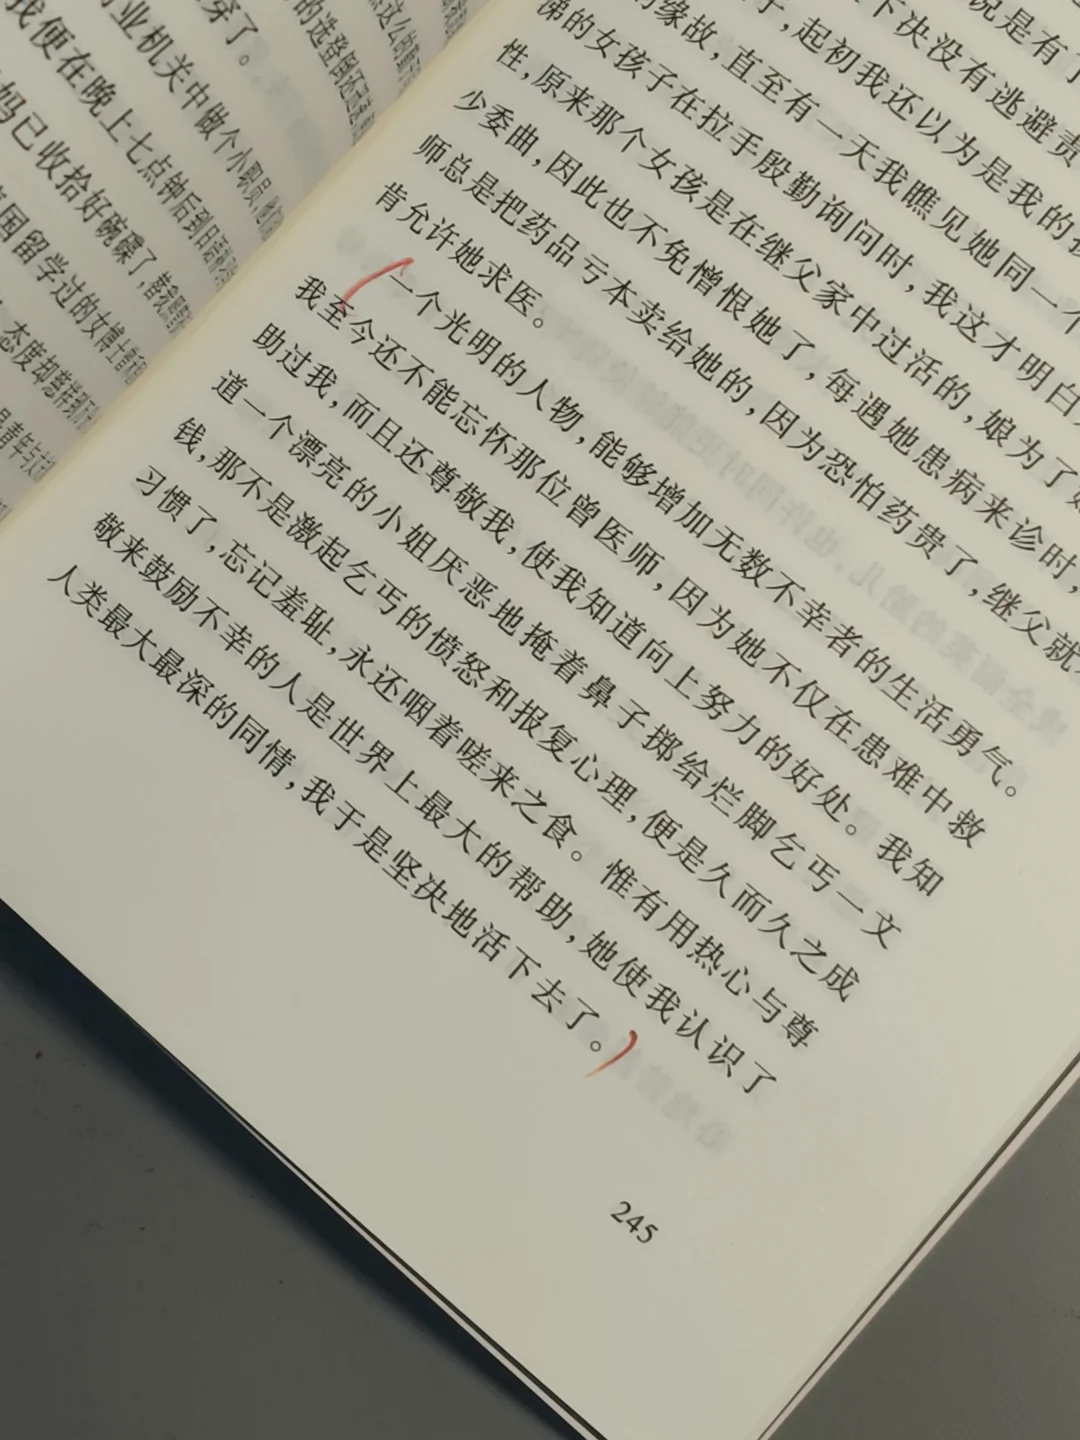 穿了。
业机关中做个小职员，
我便在晚上七点钟后到
妈已收拾好碗碟了，
国留学过的女
态度却
说是有了
下决没有逃避责
起初我还以为是我的
缘故，直至有一天我瞧见她同一个
的女孩子在拉手殷勤询问时，我这才明白
性，原来那个女孩是在继父家中过活的，娘为了
少委曲，因此也不免憎恨她了，每遇她患病来诊时，
师总是把药品亏本卖给她的，因为恐怕药贵了，继父就
肯允许她求医。
一个光明的人物，能够增加无数不幸者的生活勇气。
我至今还不能忘怀那位曾医师，因为她不仅在患难中救
助过我，而且还尊敬我，使我知道向上努力的好处。我知
道一个漂亮的小姐厌恶地掩着鼻子掷给烂脚乞丐一文
钱，那不是激起乞丐的愤怒和报复心理，便是久而久之成
习惯了，忘记羞耻，永还咽着嗟来之食。惟有用热心与尊
敬来鼓励不幸的人是世界上最大的帮助，她使我认识了
人类最大最深的同情，我于是坚决地活下去了。
245